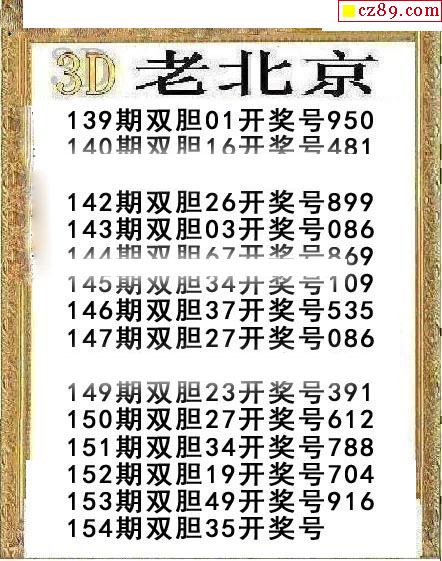 cz89.com
3D 老北京
139期双胆01开奖号950
140期双胆16开奖号481
142期双胆26开奖号899
143期双胆03开奖号086
144期双胆67开奖号869
145期双胆34开奖号109
146期双胆37开奖号535
147期双胆27开奖号086
149期双胆23开奖号391
150期双胆27开奖号612
151期双胆34开奖号788
152期双胆19开奖号704
153期双胆49开奖号916
154期双胆35开奖号